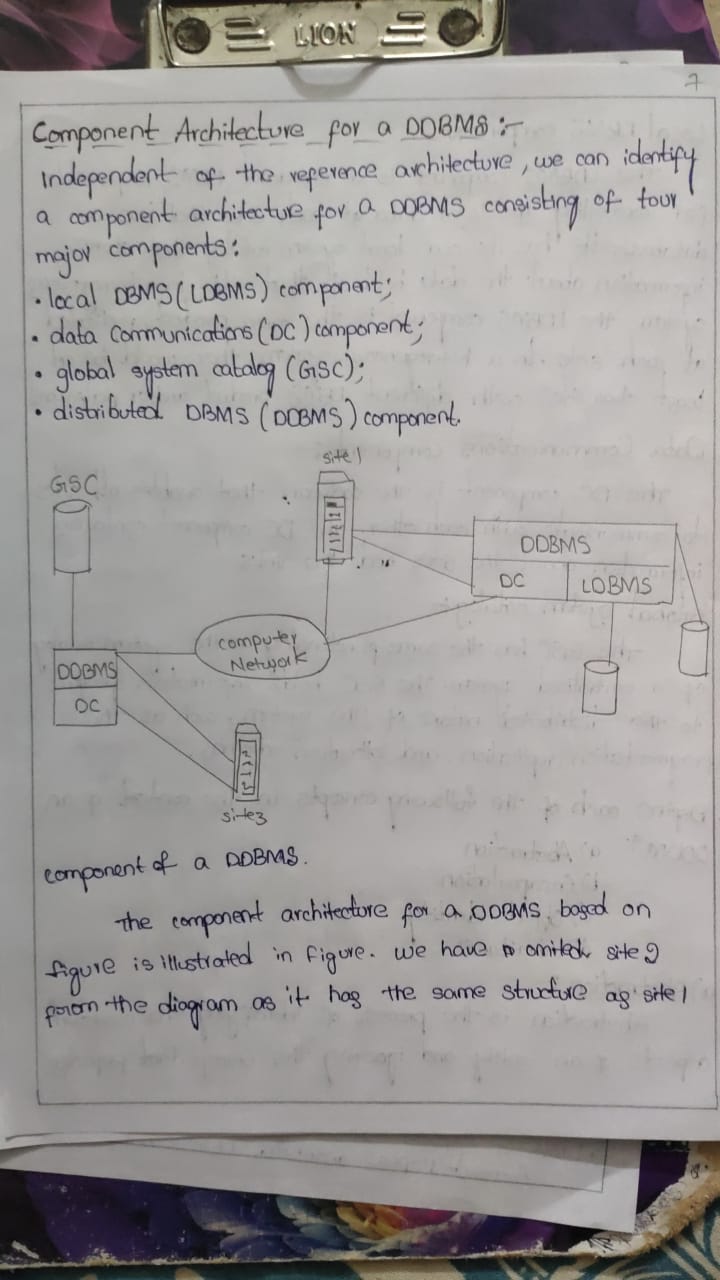 LION
7
Component Architecture for a DDBMS :-
Independent of the reference architecture, we can identify
a component architecture for a DDBMS consisting of four
major components:
• local DBMS (LDBMS) component;
• data communications (DC) component;
• global system catalog (GSC);
• distributed DBMS (DDBMS) component.
site 1
GSC
DDBMS
DC
LDBMS
computer
Network
DDBMS
DC
site3
component of a DDBMS.
The component architecture for a DDBMS based on
figure is illustrated in figure. we have omited site 2
from the diagram as it has the same structure as site 1